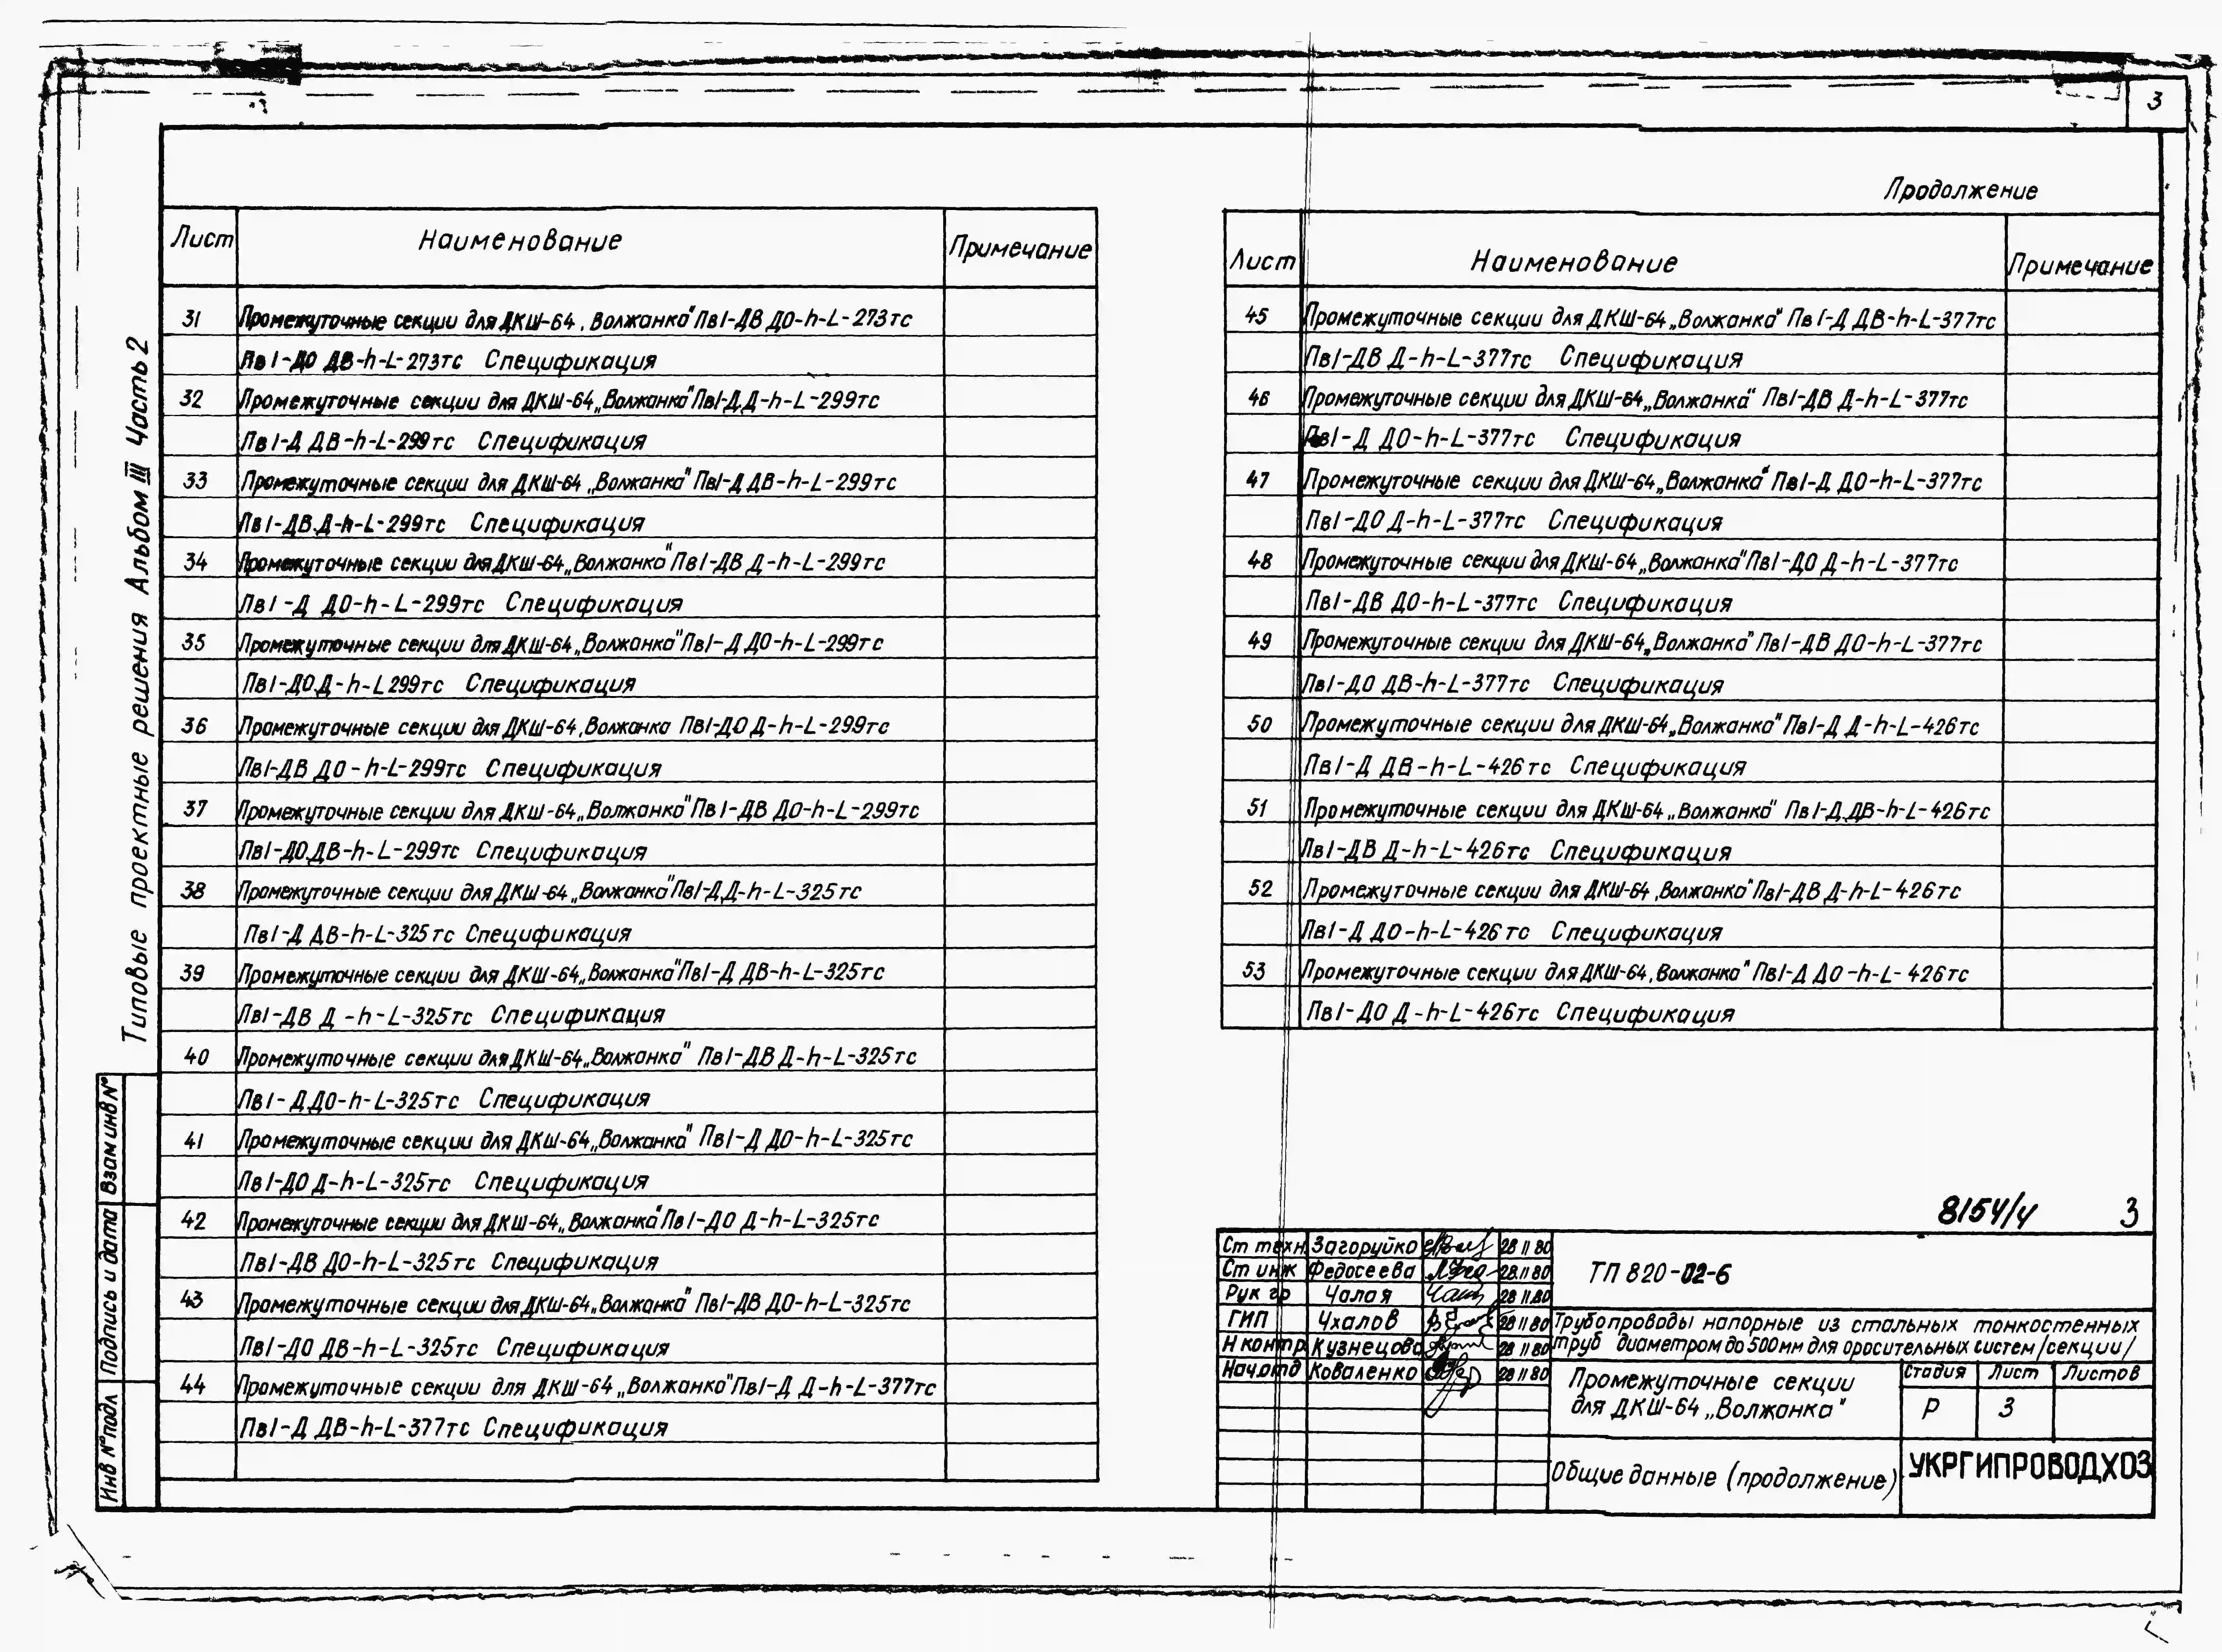 3
Продолжение
Типовые проектные решения Альбом III Часть 2
Лист Наименование Примечание
31 Промежуточные секции для ДКШ-64 „Волжанка" Пв1-ДВ ДО-h-L-273тс
Пв1-ДО ДВ-h-L-273тс Спецификация
32 Промежуточные секции для ДКШ-64 „Волжанка" Пв1-Д.Д-h-L-299тс
Пв1-Д ДВ-h-L-299тс Спецификация
33 Промежуточные секции для ДКШ-64 „Волжанка" Пв1-Д ДВ-h-L-299тс
Пв1-ДВ.Д-h-L-299тс Спецификация
34 Промежуточные секции для ДКШ-64 „Волжанка" Пв1-ДВ Д-h-L-299тс
Пв1-Д ДО-h-L-299тс Спецификация
35 Промежуточные секции для ДКШ-64 „Волжанка" Пв1-Д ДО-h-L-299тс
Пв1-ДО.Д-h-L 299тс Спецификация
36 Промежуточные секции для ДКШ-64 ,Волжанка Пв1-ДО Д-h-L-299тс
Пв1-ДВ ДО-h-L-299тс Спецификация
37 Промежуточные секции для ДКШ-64 „Волжанка" Пв1-ДВ ДО-h-L-299тс
Пв1-ДО.ДВ-h-L-299тс Спецификация
38 Промежуточные секции для ДКШ-64 „Волжанка" Пв1-Д.Д-h-L-325тс
Пв1-Д ДВ-h-L-325тс Спецификация
39 Промежуточные секции для ДКШ-64 „Волжанка" Пв1-Д ДВ-h-L-325тс
Пв1-ДВ Д-h-L-325тс Спецификация
40 Промежуточные секции для ДКШ-64 „Волжанка" Пв1-ДВ Д-h-L-325тс
Пв1-Д ДО-h-L-325тс Спецификация
41 Промежуточные секции для ДКШ-64 „Волжанка" Пв1-Д ДО-h-L-325тс
Пв1-ДО Д-h-L-325тс Спецификация
42 Промежуточные секции для ДКШ-64 „Волжанка" Пв1-ДО Д-h-L-325тс
Пв1-ДВ ДО-h-L-325тс Спецификация
43 Промежуточные секции для ДКШ-64 „Волжанка" Пв1-ДВ ДО-h-L-325тс
Пв1-ДО ДВ-h-L-325тс Спецификация
44 Промежуточные секции для ДКШ-64 „Волжанка" Пв1-Д Д-h-L-377тс
Пв1-Д ДВ-h-L-377тс Спецификация
Лист Наименование Примечание
45 Промежуточные секции для ДКШ-64 „Волжанка" Пв1-Д ДВ-h-L-377тс
Пв1-ДВ Д-h-L-377тс Спецификация
46 Промежуточные секции для ДКШ-64 „Волжанка" Пв1-ДВ Д-h-L-377тс
Пв1-Д ДО-h-L-377тс Спецификация
47 Промежуточные секции для ДКШ-64 „Волжанка" Пв1-Д ДО-h-L-377тс
Пв1-ДО Д-h-L-377тс Спецификация
48 Промежуточные секции для ДКШ-64 „Волжанка" Пв1-ДО Д-h-L-377тс
Пв1-ДВ ДО-h-L-377тс Спецификация
49 Промежуточные секции для ДКШ-64 „Волжанка" Пв1-ДВ ДО-h-L-377тс
Пв1-ДО ДВ-h-L-377тс Спецификация
50 Промежуточные секции для ДКШ-64 „Волжанка" Пв1-Д Д-h-L-426тс
Пв1-Д ДВ-h-L-426тс Спецификация
51 Промежуточные секции для ДКШ-64 „Волжанка" Пв1-Д.ДВ-h-L-426тс
Пв1-ДВ Д-h-L-426тс Спецификация
52 Промежуточные секции для ДКШ-64 ,Волжанка" Пв1-ДВ Д-h-L-426тс
Пв1-Д ДО-h-L-426тс Спецификация
53 Промежуточные секции для ДКШ-64 ,Волжанка" Пв1-Д ДО-h-L-426тс
Пв1-ДО Д-h-L-426тс Спецификация
8154/4 3
Ст техн. Загоруйко 28 11 80
Ст инж Федосеева 28.11 80
Рук гр Чалая 28 11.80
ГИП Чхалов 28 11 80
Н контр Кузнецова 28 11 80
Нач.отд Коваленко 28 11 80
ТП 820-02-6
Трубопроводы напорные из стальных тонкостенных
труб диаметром до 500мм для оросительных систем /секции/
Промежуточные секции
для ДКШ-64 „Волжанка"
Стадия Лист Листов
Р 3
Общие данные (продолжение)
УКРГИПРОВОДХОЗ
Взам инв №
Подпись и дата
Инв № подл